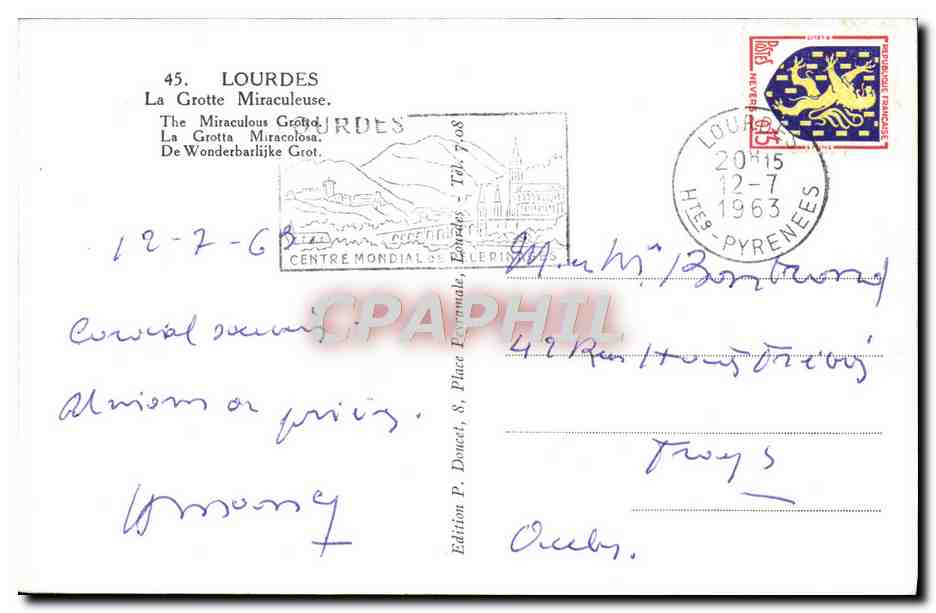 45. LOURDES
La Grotte Miraculeuse.
The Miraculous Grotto.
La Grotta Miracolosa.
De Wonderbarlijke Grot.
LOURDES
CENTRE MONDIAL DE PELERINAGES
POSTES
REPUBLIQUE FRANÇAISE
NEVERS 0,15
LOURDES
20H15
12-7
1963
HTES-PYRENEES
12-7-63
Cordial souvenir.
Unions de prières.
Edition P. Doucet, 8, Place Peyramale, Lourdes - Tél. 7.08
M. et Mme
42 Rue
Troyes
Aube.
CPAPHIL